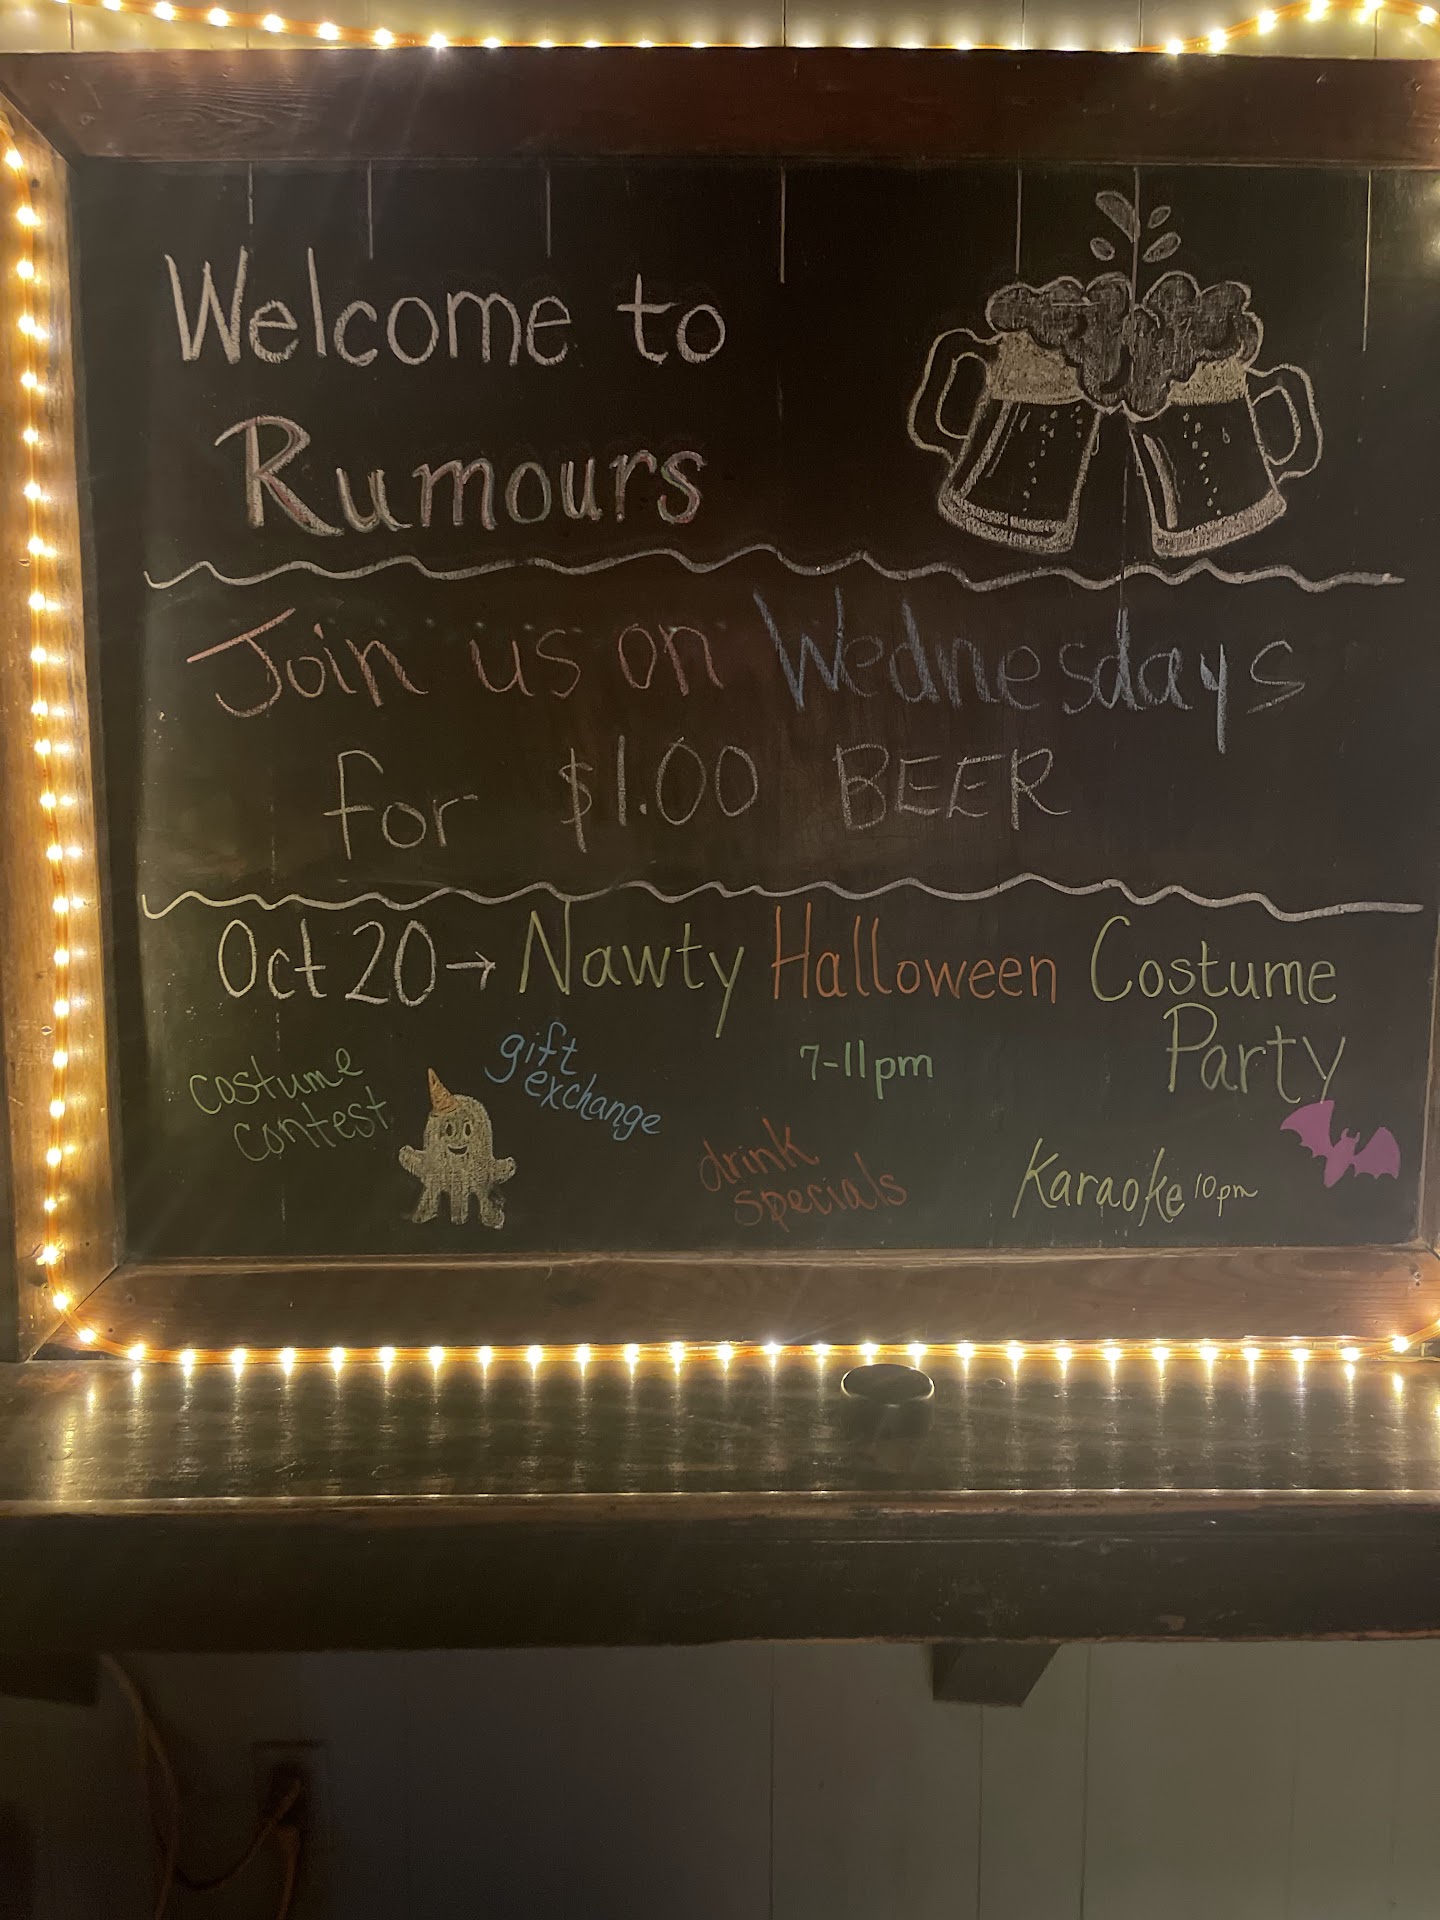 Welcome to
Rumours
Join us on Wednesdays
for $1.00 BEER
Oct 20 → Nawty Halloween Costume
Party
costume
contest
gift
exchange
7-11pm
drink
specials
Karaoke 10pm